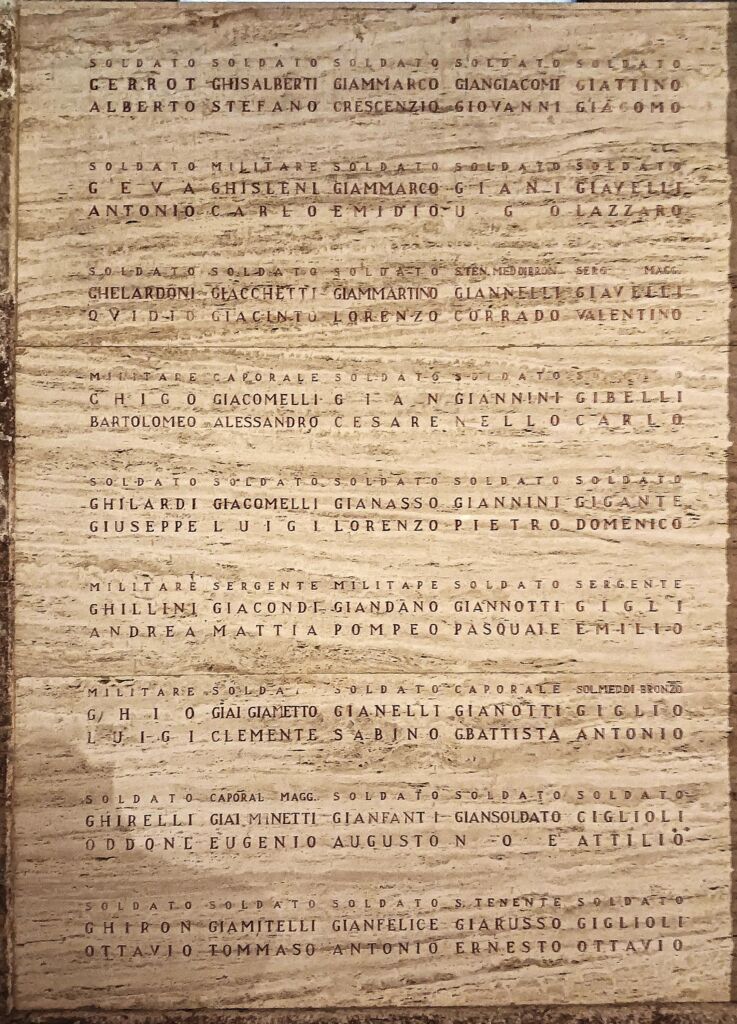 SOLDATO SOLDATO SOLDATO SOLDATO SOLDATO
GERROT GHISALBERTI GIAMMARCO GIANGIACOMI GIATTINO
ALBERTO STEFANO CRESCENZIO GIOVANNI GIACOMO
SOLDATO MILITARE SOLDATO SOLDATO SOLDATO
GEVA GHISLENI GIAMMARCO GIANI GIAVELLI
ANTONIO CARLO EMIDIO UGO LAZZARO
SOLDATO SOLDATO SOLDATO S.TEN.MED.DI BRON. SERG. MAGG.
GHELARDONI GIACCHETTI GIAMMARTINO GIANNELLI GIAVELLI
OVIDIO GIACINTO LORENZO CORRADO VALENTINO
MILITARE CAPORALE SOLDATO SOLDATO
GHIGO GIACOMELLI GIAN GIANNINI GIBELLI
BARTOLOMEO ALESSANDRO CESARE NELLO CARLO
SOLDATO SOLDATO SOLDATO SOLDATO SOLDATO
GHILARDI GIACOMELLI GIANASSO GIANNINI GIGANTE
GIUSEPPE LUIGI LORENZO PIETRO DOMENICO
MILITARE SERGENTE MILITARE SOLDATO SERGENTE
GHILLINI GIACONDI GIANDANO GIANNOTTI GIGLI
ANDREA MATTIA POMPEO PASQUALE EMILIO
MILITARE SOLDA SOLDATO CAPORALE SOL.MED.DI BRONZO
GHIO GIAI GIAMETTO GIANELLI GIANOTTI GIGLIO
LUIGI CLEMENTE SABINO G.BATTISTA ANTONIO
SOLDATO CAPORAL MAGG. SOLDATO SOLDATO SOLDATO
GHIRELLI GIAI MINETTI GIANFANTI GIANSOLDATO GIGLIOLI
ODDONE EUGENIO AUGUSTO NOE' ATTILIO
SOLDATO SOLDATO SOLDATO S.TENENTE SOLDATO
GHIRON GIAMITELLI GIANFELICE GIARUSSO GIGLIOLI
OTTAVIO TOMMASO ANTONIO ERNESTO OTTAVIO